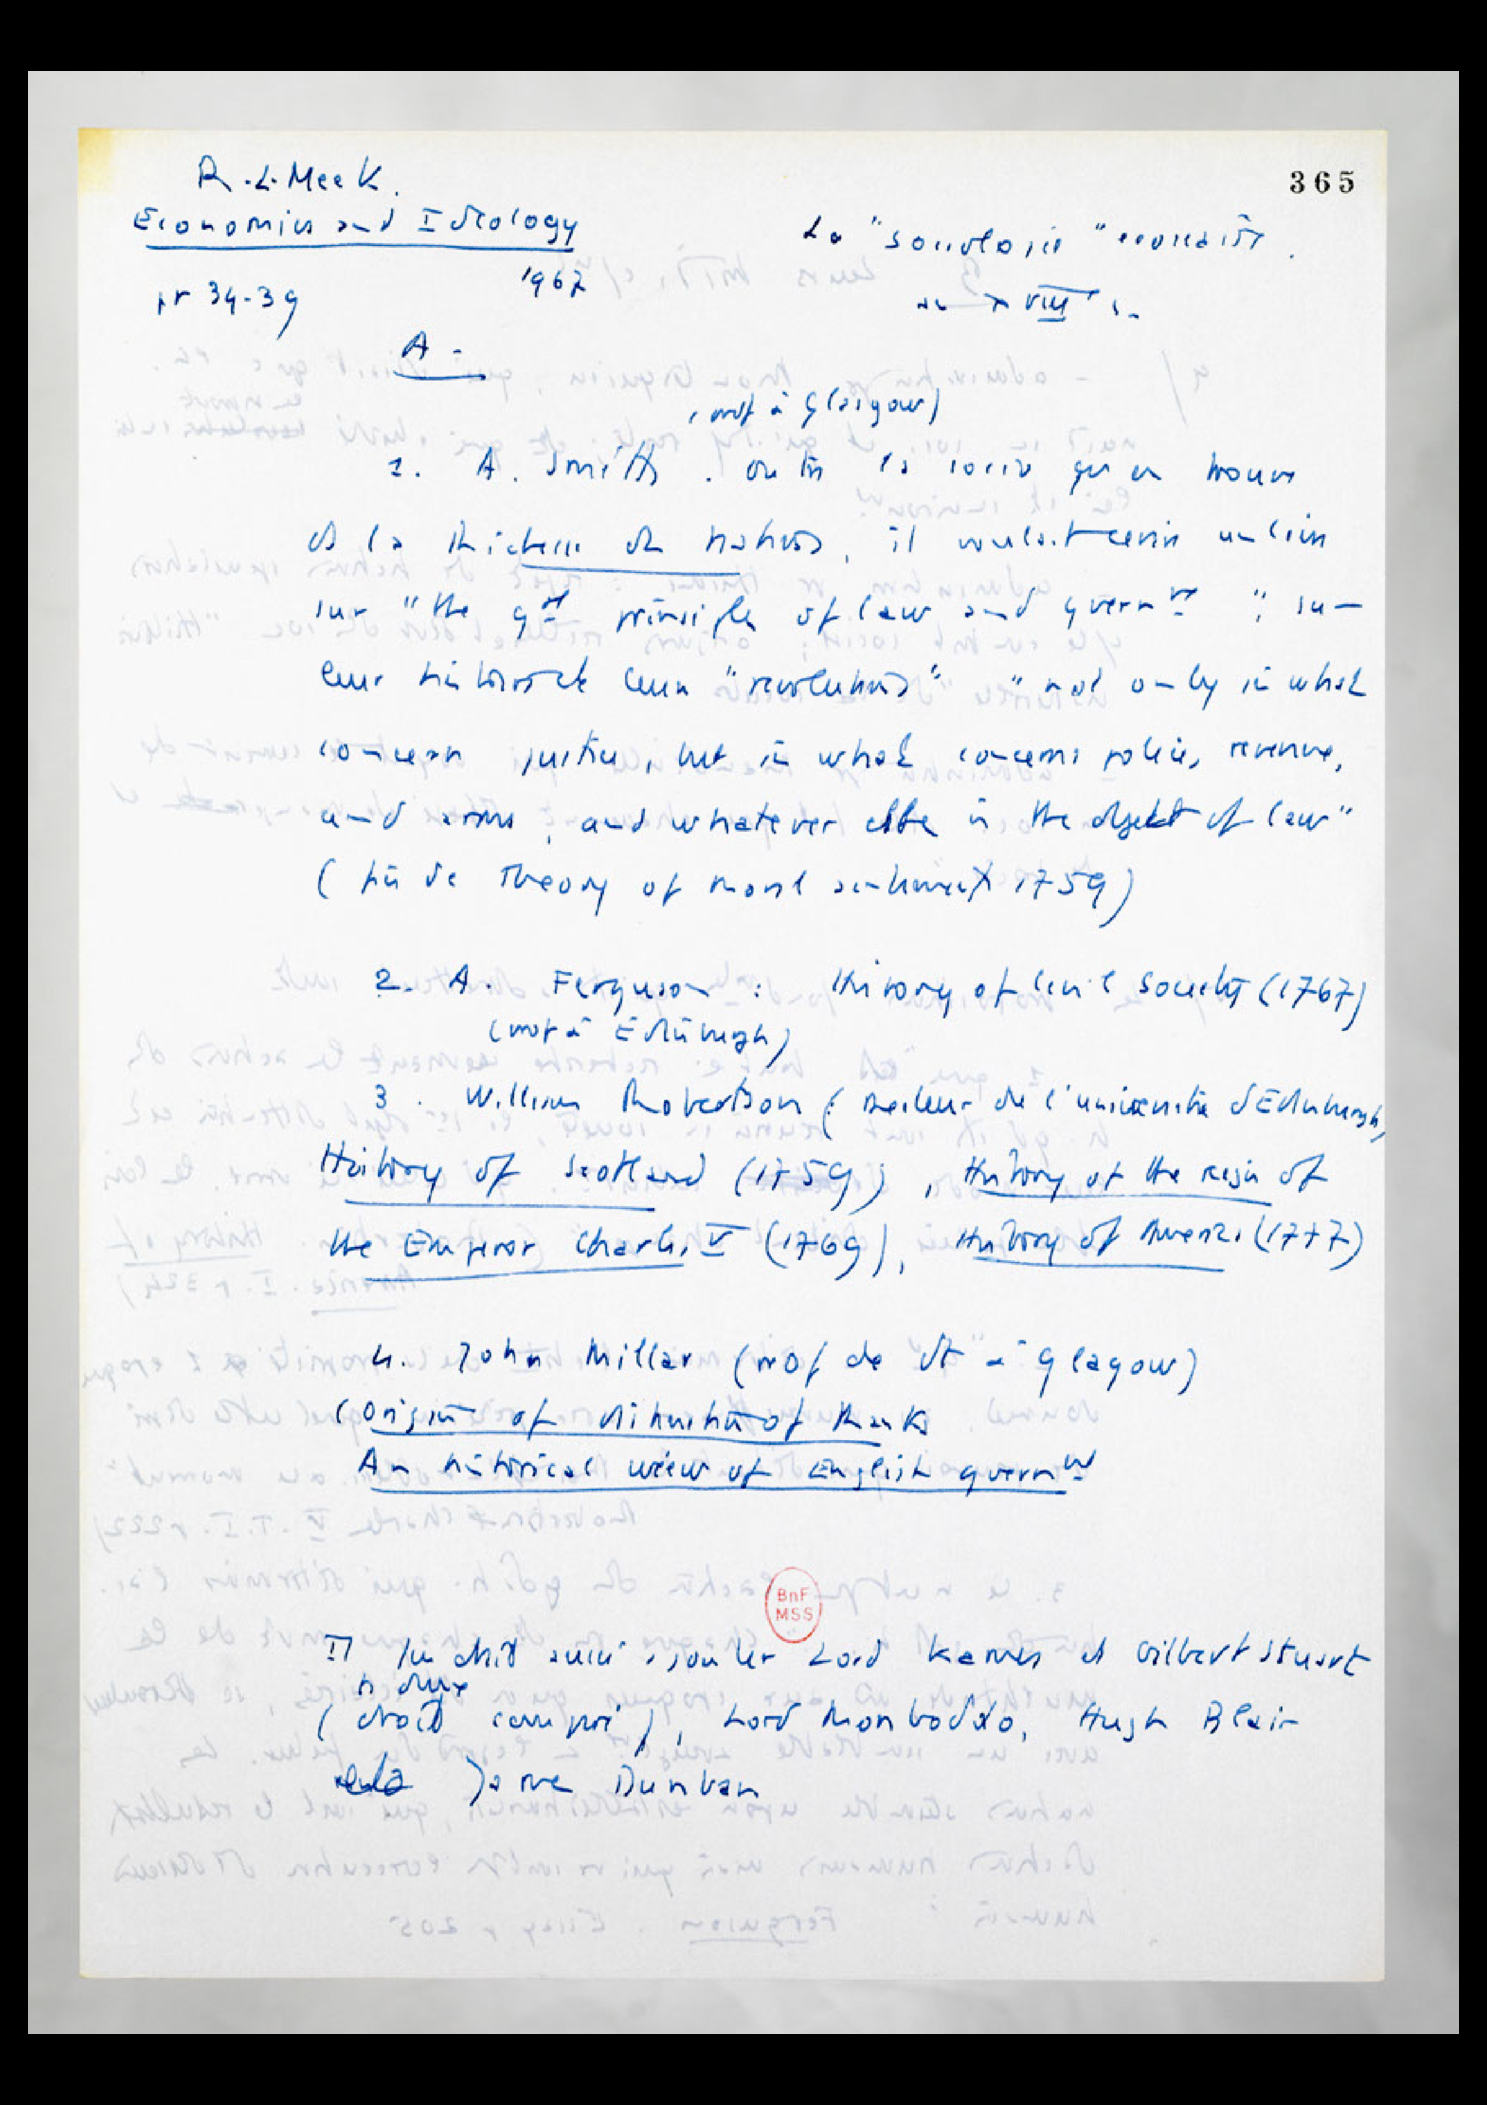 R. L. Meek.
365
Economics and Ideology
La "sociologie" écossaise.
1967
au XVIII s.
pp 34-39
A -
(prof à Glasgow)
1. A. Smith. outre la socio qu'on trouve
ds la Richesse des nations, il voulait écrire un livre
sur "the gal principles of law and governt", sur
leur histoire et leurs "revolutions" "not only in what
concern justice, but in what concerns police, revenue,
and arms, and whatever else is the object of law"
(fin de Theory of moral sentiments 1759)
2. A. Ferguson : History of civil Society (1767)
(prof à Edinburgh)
3. William Robertson (Recteur de l'université d'Edinburgh)
History of Scotland (1759), History of the reign of
the Emperor Charles V (1769), History of America (1777)
4. John Millar (prof de dt à Glagow)
(Origin of distinction of Ranks
An historical view of English governt
BnF
MSS
Il faudrait aussi ajouter Lord Kames et Gilbert Stuart
(droit comparé), Lord Monboddo, Hugh Blair
James Dunbar